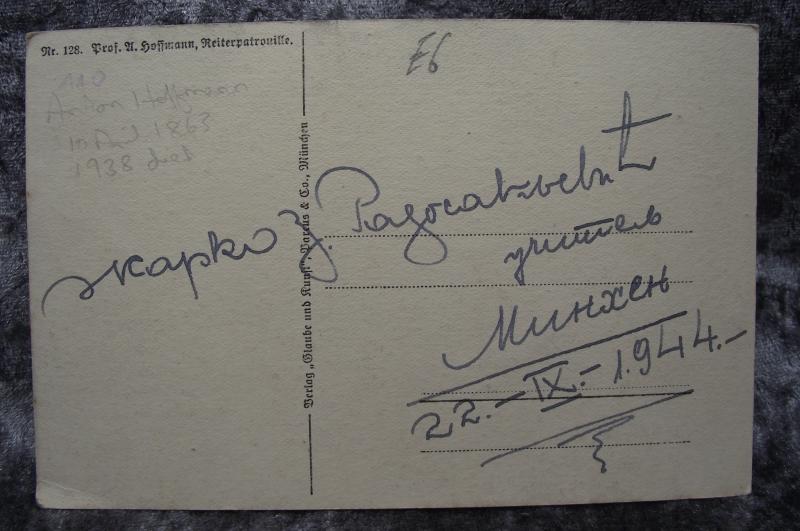 Nr. 128. Prof. A. Hoffmann, Reiterpatrouille.
E6
110
Anton Hoffmann
10 April 1863
1938 died
Verlag „Glaube und Kunst“, Parcus & Co., München
Жарко З. Радосављевић
учитељ
Минхен
22.-IX.-1.944.-